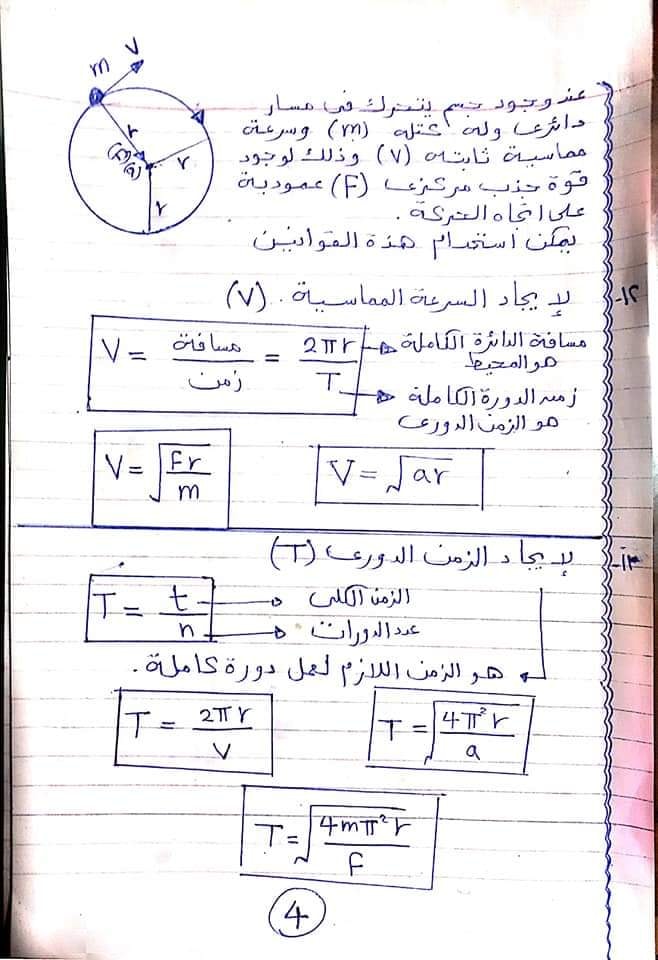 m V
r
r
r
(F)(a)
عند وجود جسم يتحرك فى مسار
دائرى وله كتله (m) وسرعة
مماسية ثابته (V) وذلك لوجود
قوة جذب مركزى (F) عمودية
على اتجاه الحركة .
يمكن استخدام هذة القوانين
١٢- لإيجاد السرعة المماسية . (V)
V = مسافة / زمن = 2πr / T
مسافة الدائرة الكاملة
هو المحيط
زمن الدورة الكاملة
هو الزمن الدورى
V = √(Fr / m)
V = √ar
١٣- لإيجاد الزمن الدورى (T)
T = t / n
الزمن الكلى
عدد الدورات
هو الزمن اللازم لعمل دورة كاملة .
T = 2πr / V
T = √(4π²r / a)
T = √(4mπ²r / F)
4